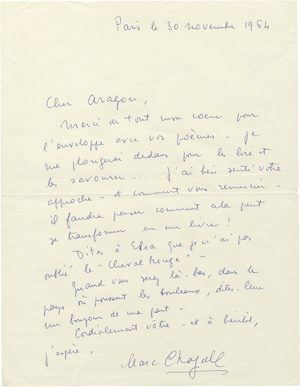 Paris le 30 novembre 1964
Cher Aragon,
Merci de tout mon coeur pour
l'enveloppe avec vos poèmes - je
me plongerai dedans pour les lire et
les savourer..... J'ai bien senti votre
approche - et comment vous remercier -
il faudra penser comment cela peut
se transformer en un livre!
Dites à Elsa que je n'ai pas
oublié le "Cheval Rouge" -
Quand vous serez là-bas, dans le
pays où poussent les bouleaux, dites-leur
un bonjour de ma part -
Cordialement vôtre - et à bientôt,
j'espère,
Marc Chagall